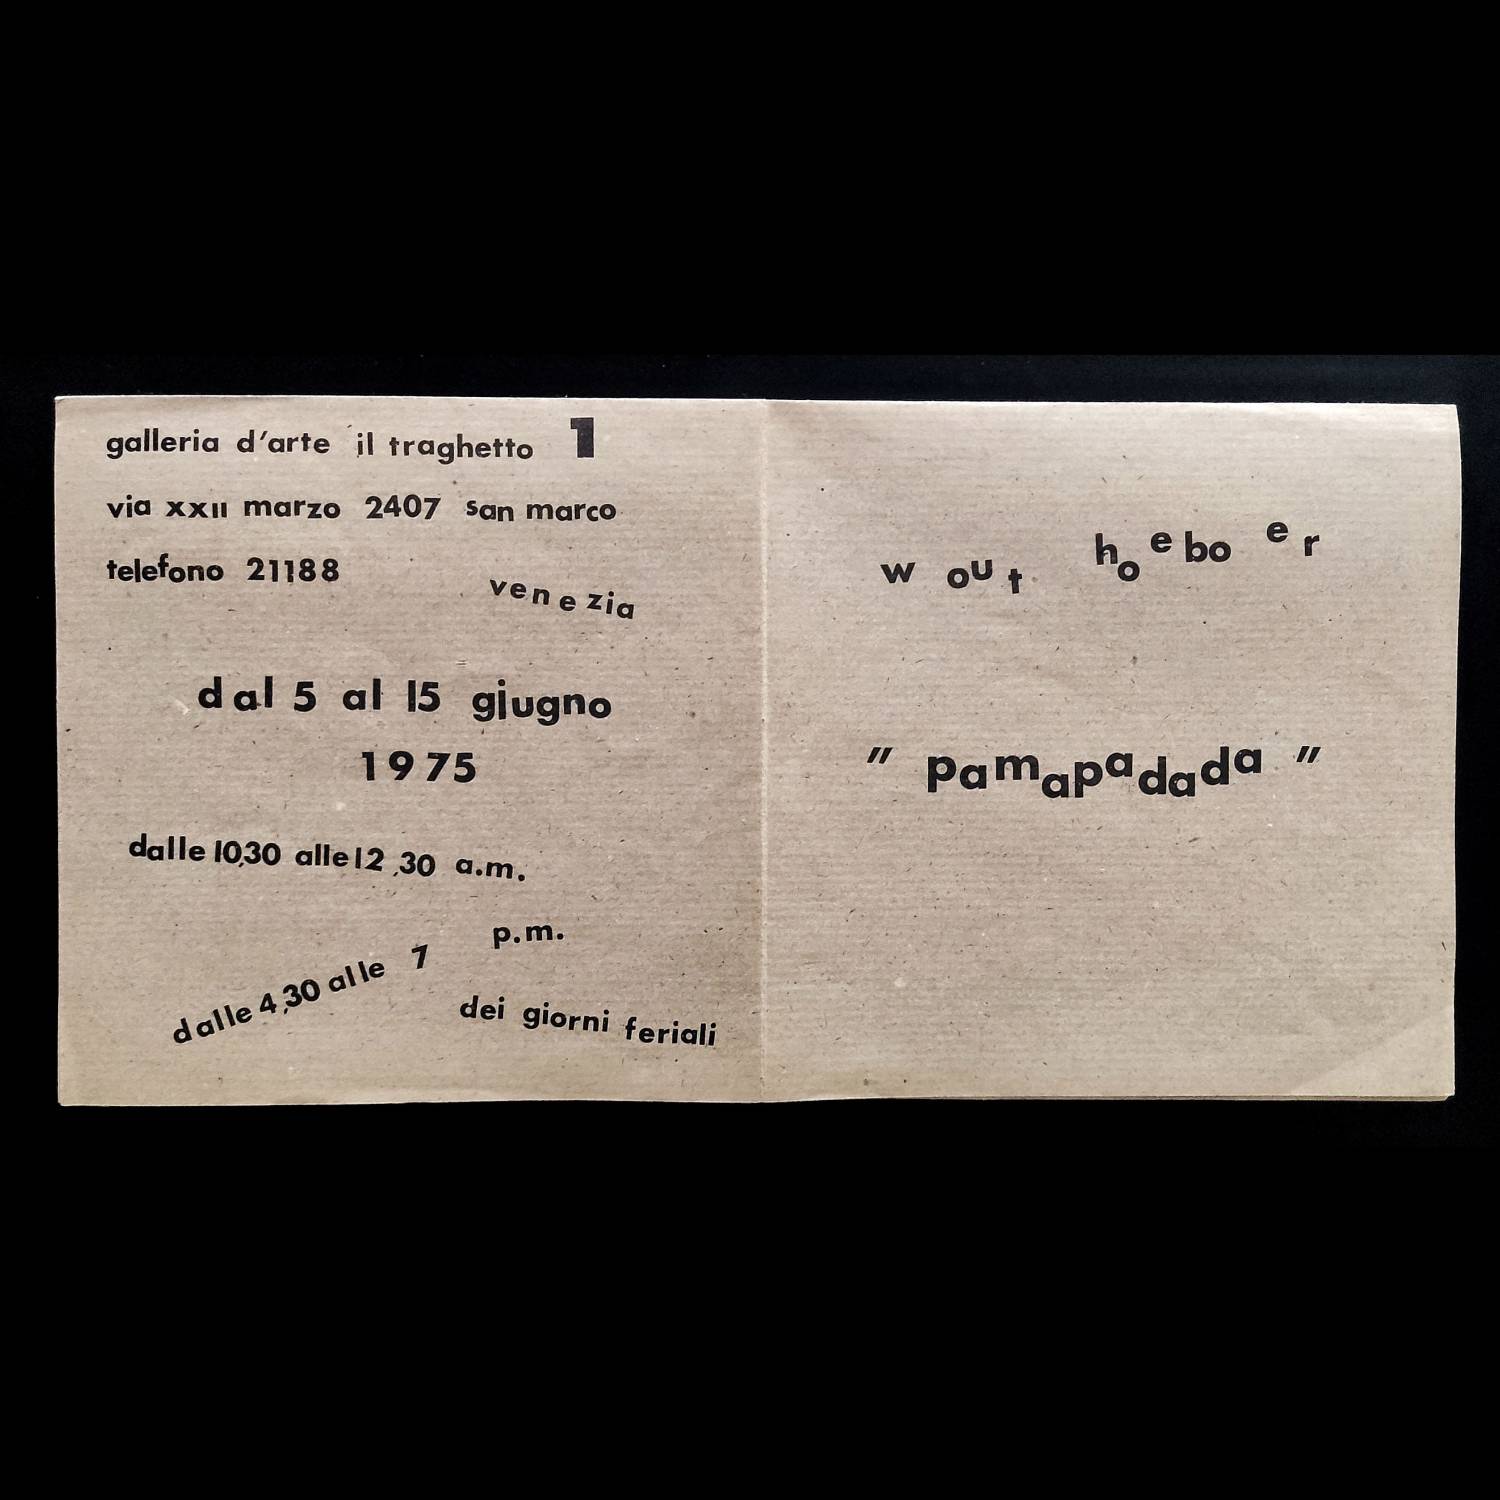 galleria d'arte il traghetto 1
via xxii marzo 2407 san marco
telefono 21188
venezia
dal 5 al 15 giugno
1975
dalle 10,30 alle 12,30 a.m.
dalle 4,30 alle 7 p.m.
dei giorni feriali
wout hoeboer
" pamapadada "